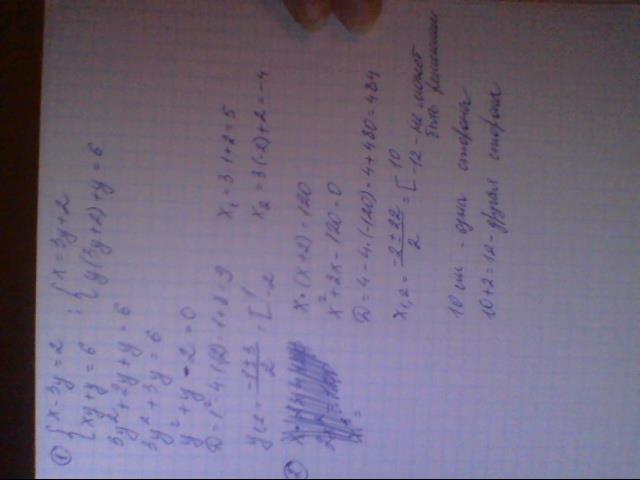 ① { x - 3y = 2 ; { x = 3y + 2
{ xy + y = 6 { y(3y+2) + y = 6
3y² + 2y + y = 6
3y² + 3y = 6
y² + y - 2 = 0
D = 1² - 4·(-2) = 1 + 8 = 9
y₁,₂ = (-1 ± 3)/2 = [ 1
-2
x₁ = 3·1 + 2 = 5
x₂ = 3(-2) + 2 = -4
②
x·(x+2) = 120
x² + 2x - 120 = 0
D = 4 - 4·(-120) = 4 + 480 = 484
x₁,₂ = (-2 ± 22)/2 = [ 10
-12 - не может
быть решением
10 см - одна сторона
10 + 2 = 12 - другая сторона